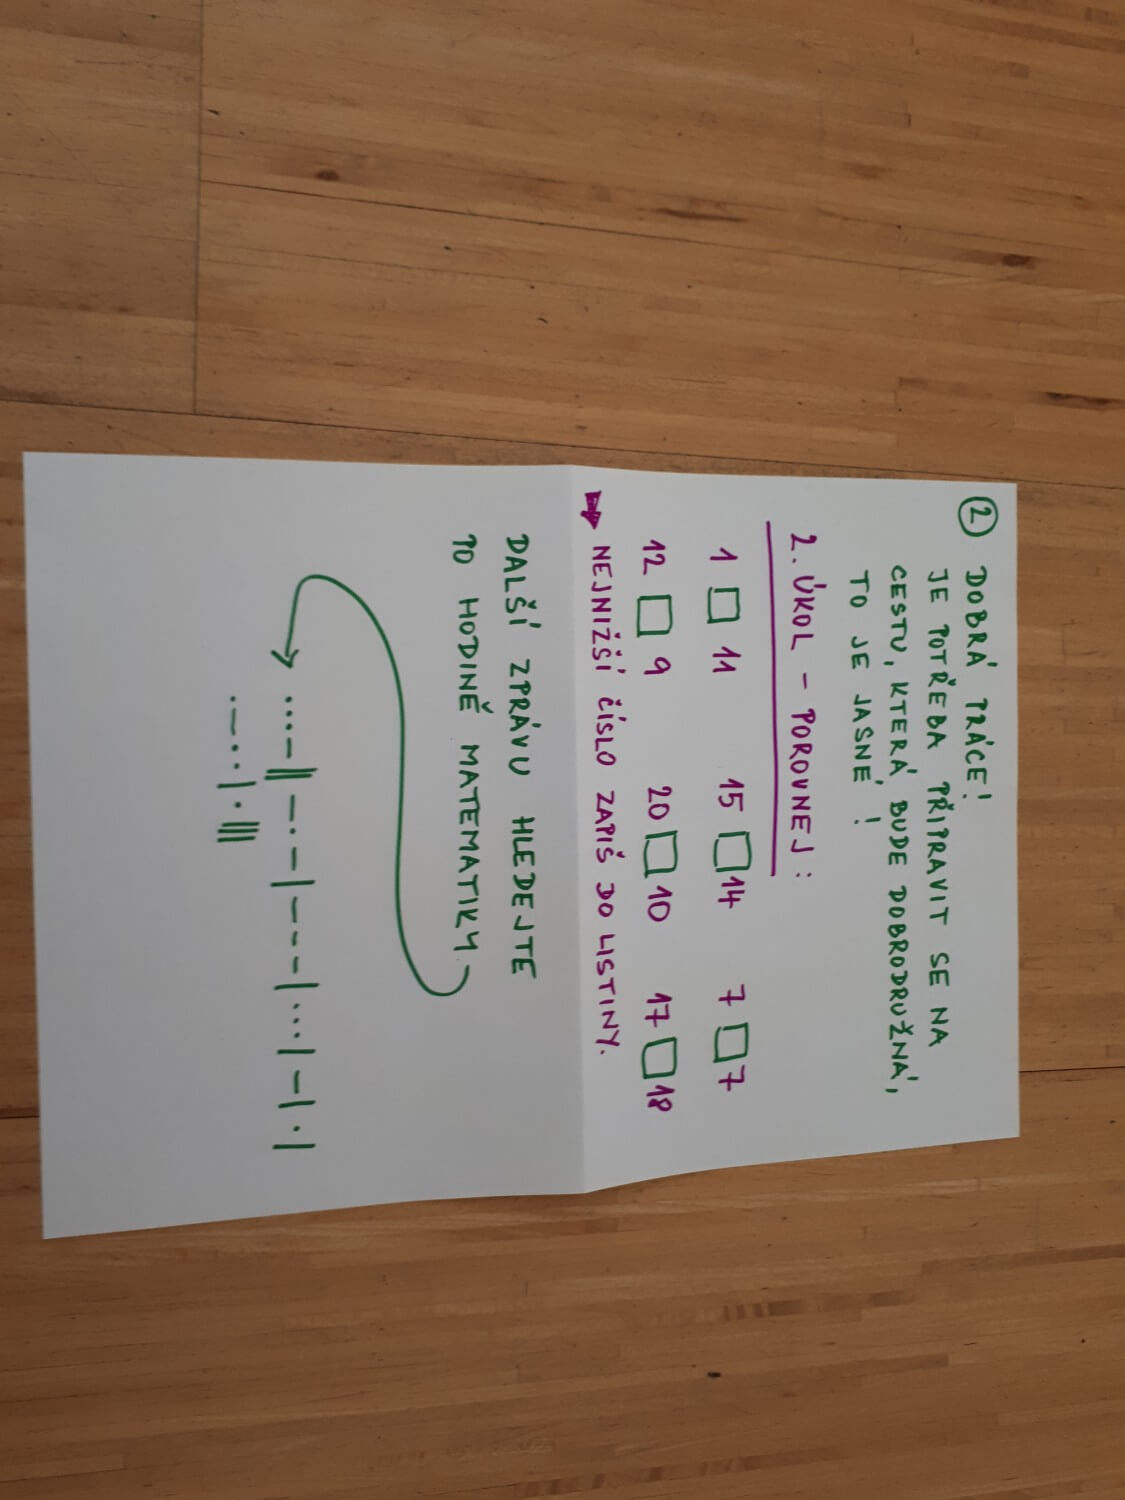 ② DOBRÁ PRÁCE!
JE POTŘEBA PŘIPRAVIT SE NA
CESTU, KTERÁ BUDE DOBRODRUŽNÁ,
TO JE JASNÉ!
2. ÚKOL - POROVNEJ:
1 □ 11 15 □ 14 7 □ 7
12 □ 9 20 □ 10 17 □ 18
➡ NEJNIŽŠÍ ČÍSLO ZAPIŠ DO LISTINY.
DALŠÍ ZPRÁVU HLEDEJTE
PO HODINĚ MATEMATIKY
...-||-.-|---|...|-|.|
.-..|.|||